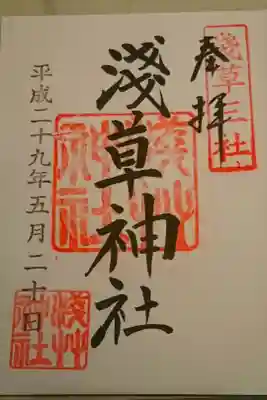 奉拝
淺草三社
淺草神社
淺草神社
平成二十九年五月二十日
淺草神社